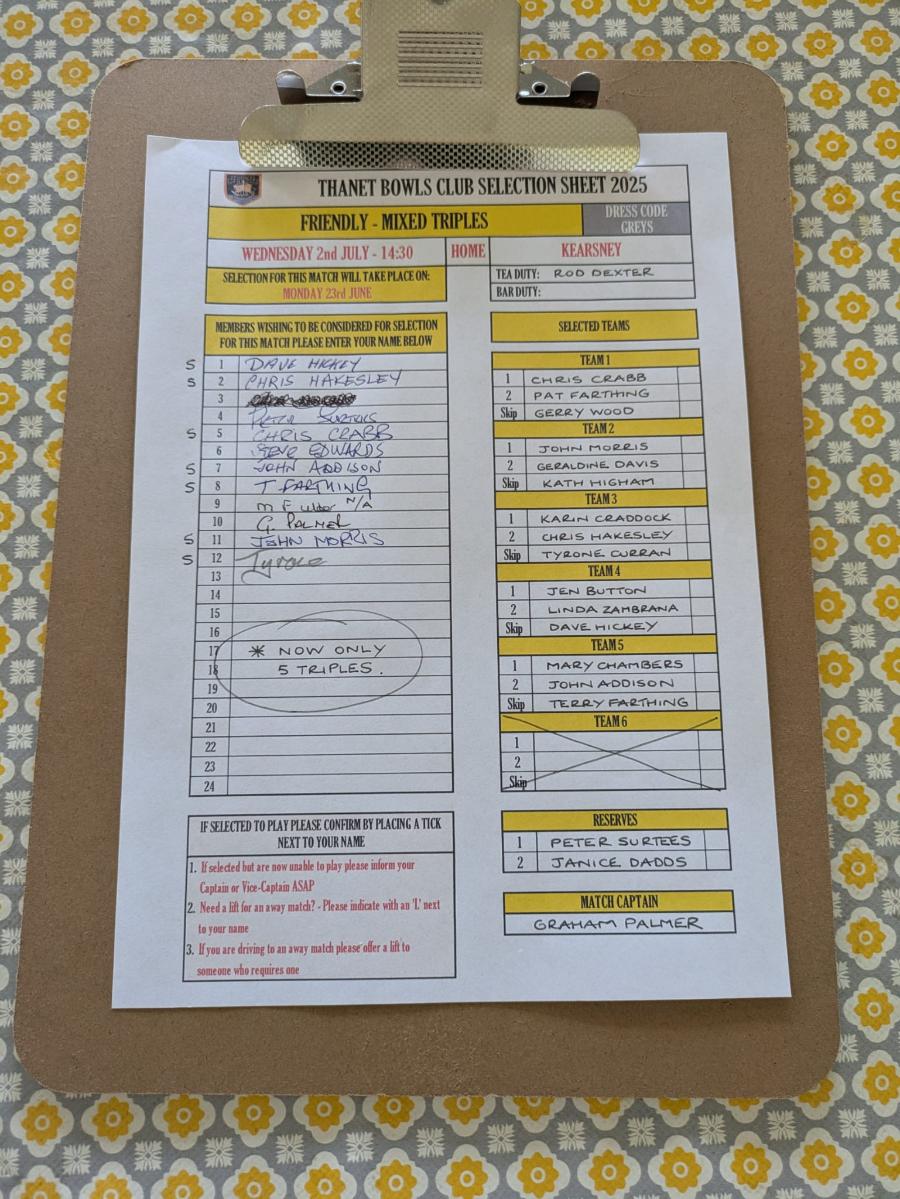 THANET BOWLS CLUB SELECTION SHEET 2025
FRIENDLY - MIXED TRIPLES
DRESS CODE
GREYS
WEDNESDAY 2nd JULY - 14:30
HOME
KEARSNEY
SELECTION FOR THIS MATCH WILL TAKE PLACE ON:
MONDAY 23rd JUNE
TEA DUTY: ROD DEXTER
BAR DUTY:
MEMBERS WISHING TO BE CONSIDERED FOR SELECTION
FOR THIS MATCH PLEASE ENTER YOUR NAME BELOW
S 1 DAVE HICKEY
S 2 CHRIS HAKESLEY
3
4 PETER SURTEES
S 5 CHRIS CRABB
6 STEVE EDWARDS
S 7 JOHN ADDISON
S 8 T FARTHING
9 M F N/A
10 G PALMER
S 11 JOHN MORRIS
S 12 Tyrone
13
14
15
16
17 * NOW ONLY
18 5 TRIPLES.
19
20
21
22
23
24
IF SELECTED TO PLAY PLEASE CONFIRM BY PLACING A TICK
NEXT TO YOUR NAME
1. If selected but are now unable to play please inform your
Captain or Vice-Captain ASAP
2. Need a lift for an away match? - Please indicate with an 'L' next
to your name
3. If you are driving to an away match please offer a lift to
someone who requires one
SELECTED TEAMS
TEAM 1
1 CHRIS CRABB
2 PAT FARTHING
Skip GERRY WOOD
TEAM 2
1 JOHN MORRIS
2 GERALDINE DAVIS
Skip KATH HIGHAM
TEAM 3
1 KARIN CRADDOCK
2 CHRIS HAKESLEY
Skip TYRONE CURRAN
TEAM 4
1 JEN BUTTON
2 LINDA ZAMBRANA
Skip DAVE HICKEY
TEAM 5
1 MARY CHAMBERS
2 JOHN ADDISON
Skip TERRY FARTHING
TEAM 6
1
2
Skip
RESERVES
1 PETER SURTEES
2 JANICE DADDS
MATCH CAPTAIN
GRAHAM PALMER